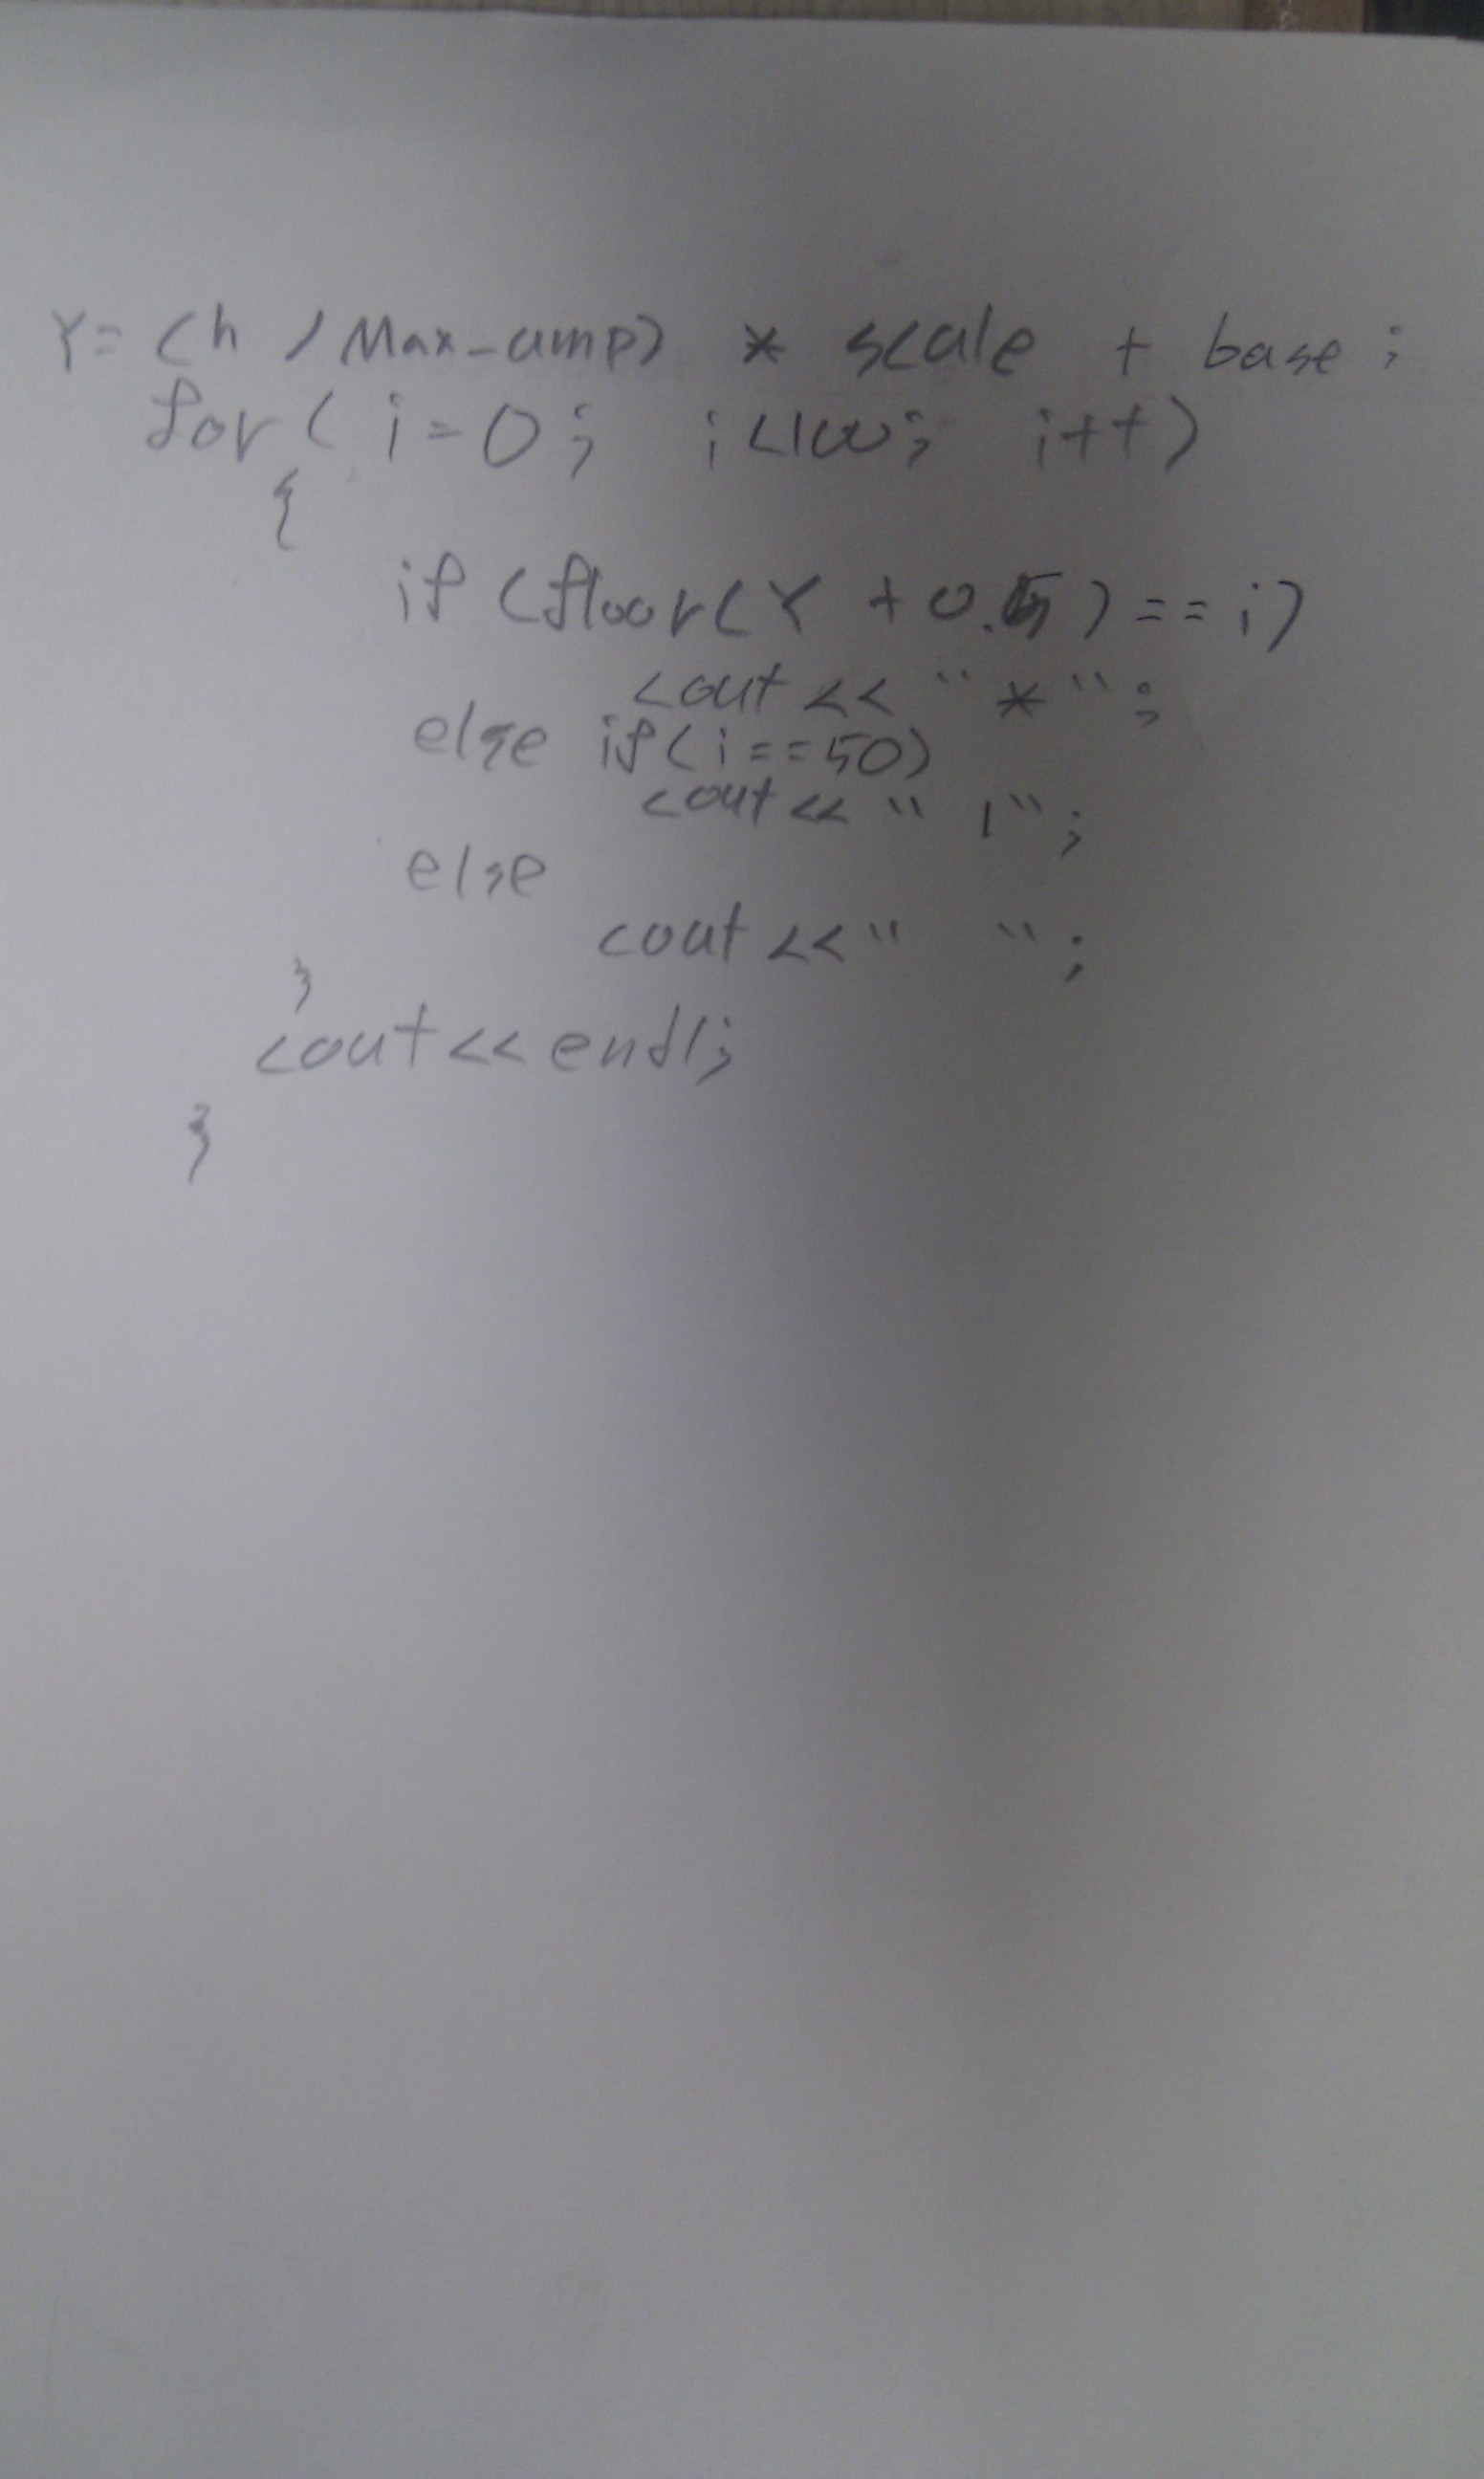 Y= (h / Max_amp) * scale + base ;
for ( i=0 ; i<100; i++)
{
if (floor(Y +0.5) == i)
cout << "*";
else if(i==50)
cout << " |";
else
cout << " ";
}
cout << endl;
}